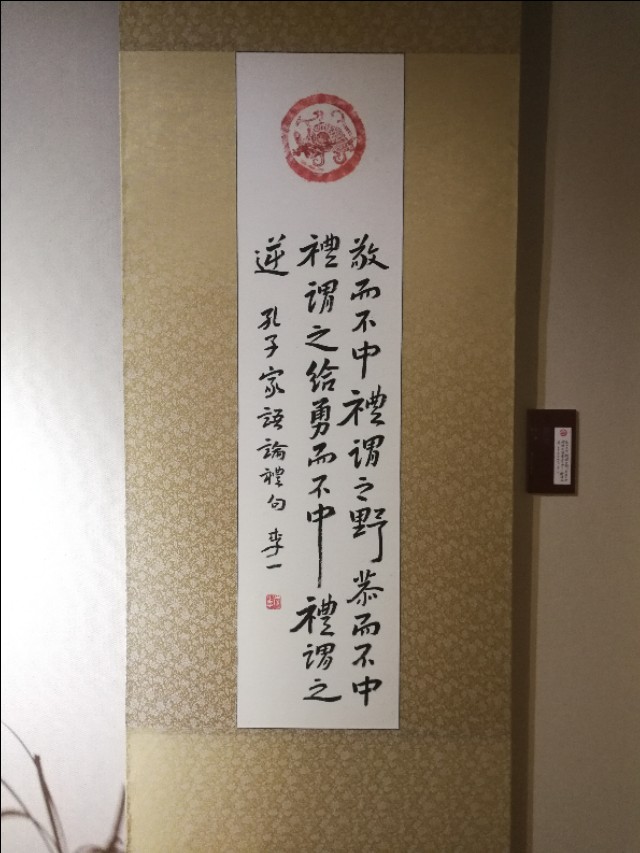 敬而不中禮謂之野恭而不中
禮謂之給勇而不中禮謂之
逆 孔子家語論禮句 李一